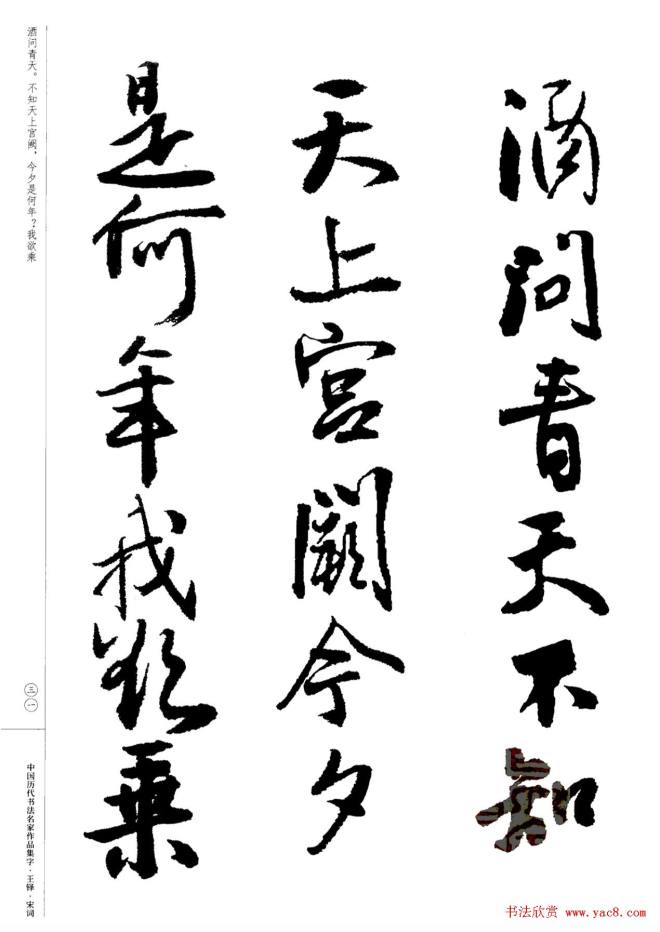 酒问青天不知
天上宫阙今夕
是何年我欲乘
酒问青天。不知天上宫阙，今夕是何年？我欲乘
三一
中国历代书法名家作品集字·王铎·宋词
书法欣赏 www.yac8.com